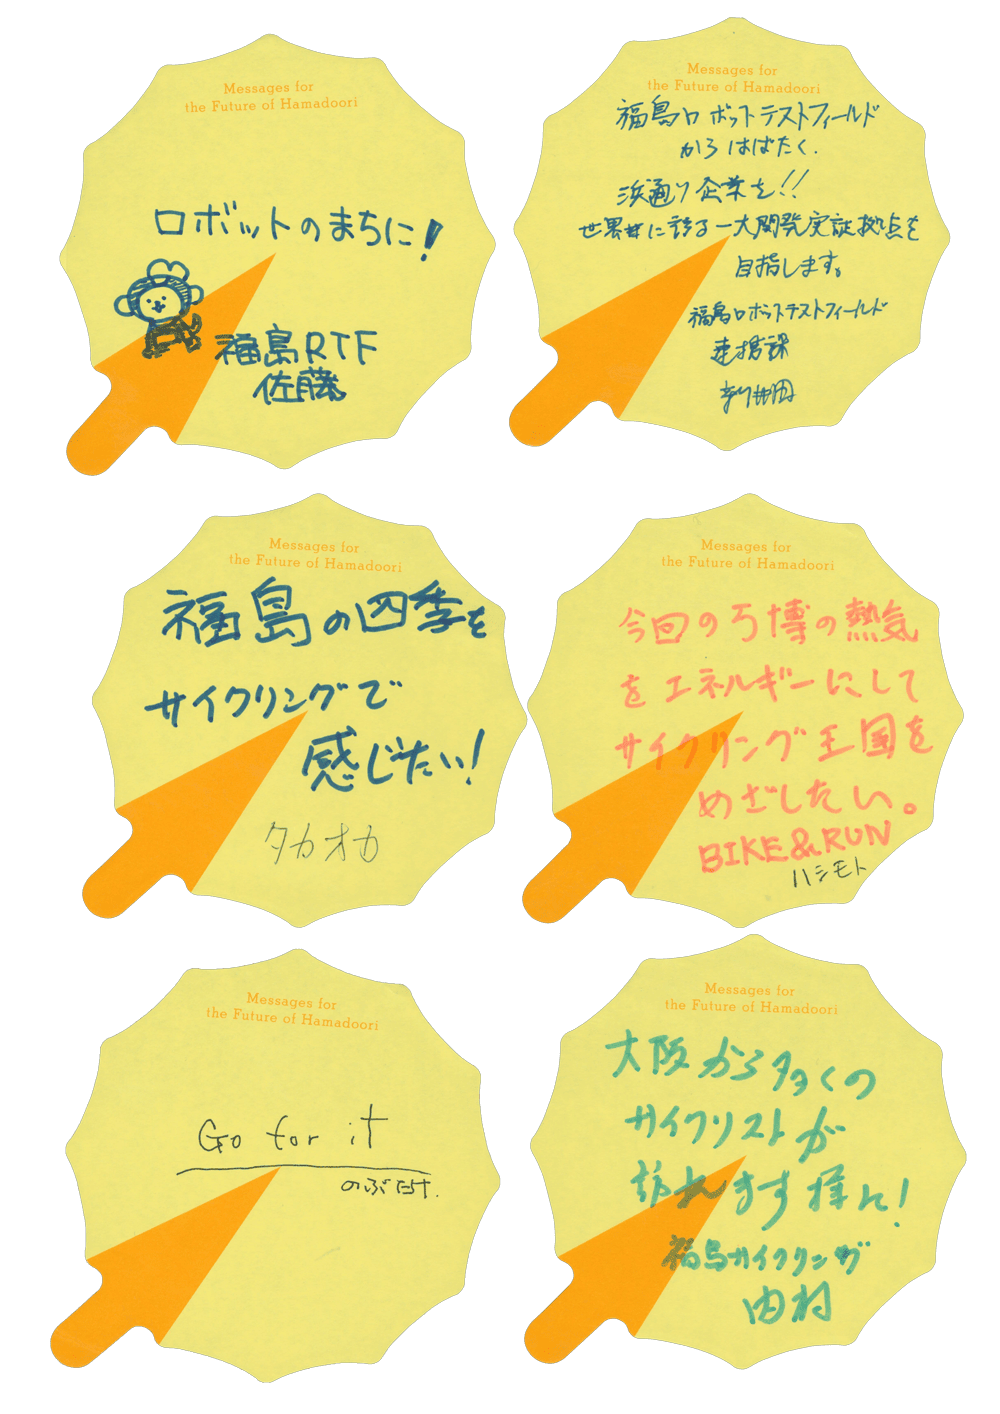 Messages for
the Future of Hamadoori
ロボットのまちに!
福島RTF
佐藤
Messages for
the Future of Hamadoori
福島ロボットテストフィールド
からはばたく.
浜通り企業を!!
世界に誇る一大開発実証拠点を
目指します。
福島ロボットテストフィールド
連携課
Messages for
the Future of Hamadoori
福島の四季を
サイクリングで
感じたい!
タカオカ
Messages for
the Future of Hamadoori
今回の万博の熱気
をエネルギーにして
サイクリング王国を
めざしたい。
BIKE&RUN
ハシモト
Messages for
the Future of Hamadoori
Go for it
のぶたけ.
Messages for
the Future of Hamadoori
大阪から多くの
サイクリストが
訪れます様に!
福島サイクリング
内村